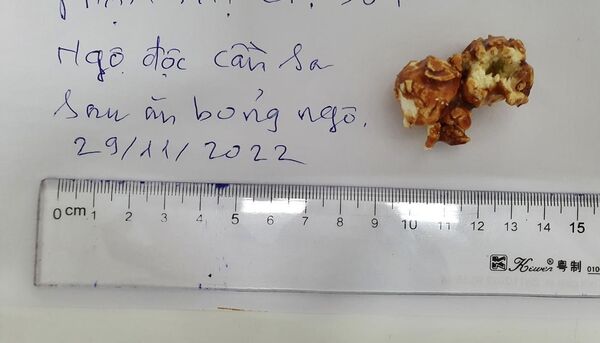 Ngộ độc cần sa
sau ăn bỏng ngô.
29/11/2022
0 cm 1 2 3 4 5 6 7 8 9 10 11 12 13 14 15
Kewen® 粤制 010